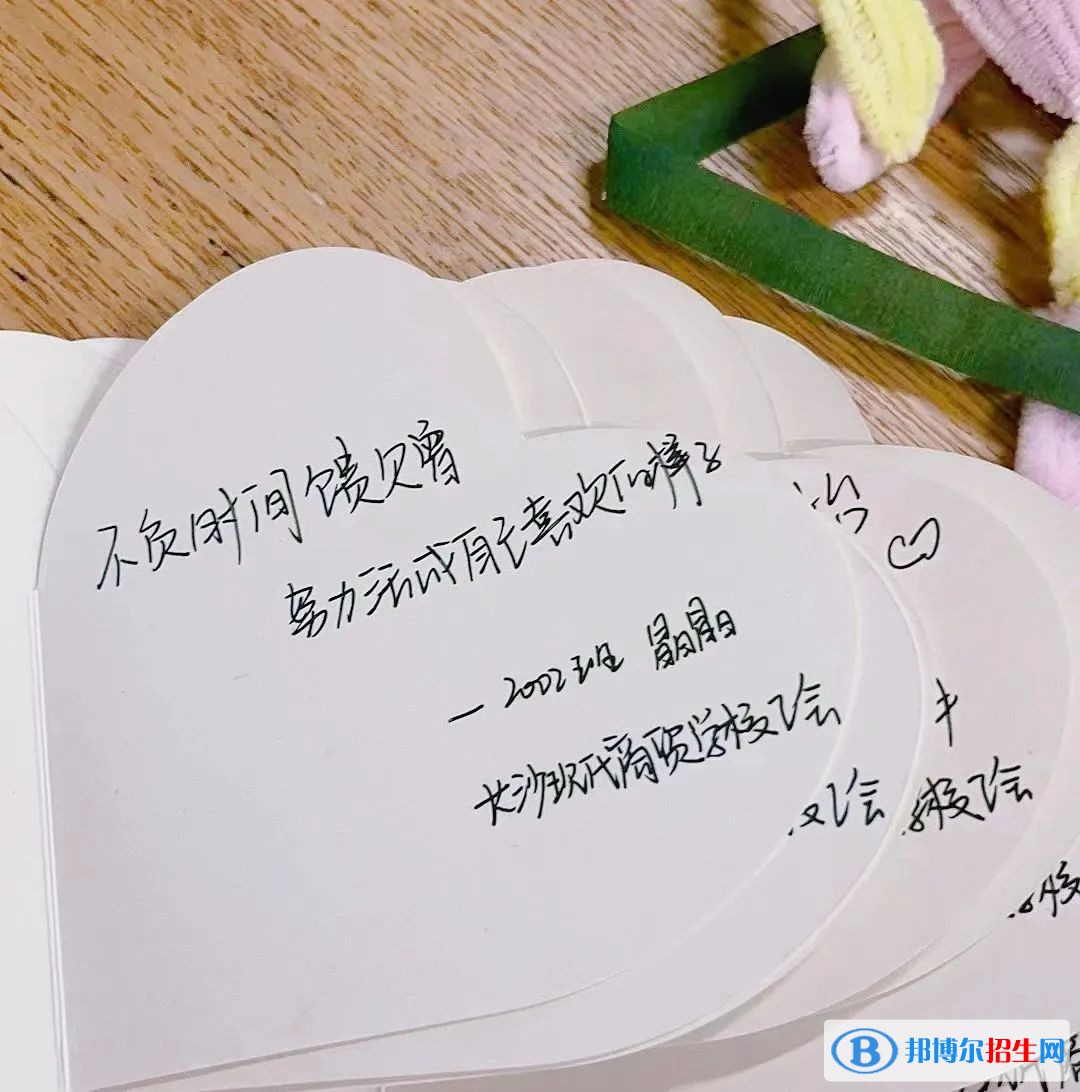 不负时间馈赠
努力活成自己喜欢的样子
—2002班 晶晶
长沙现代商贸学校飞绘
治
校飞绘
学校飞绘
学校
邦博尔招生网